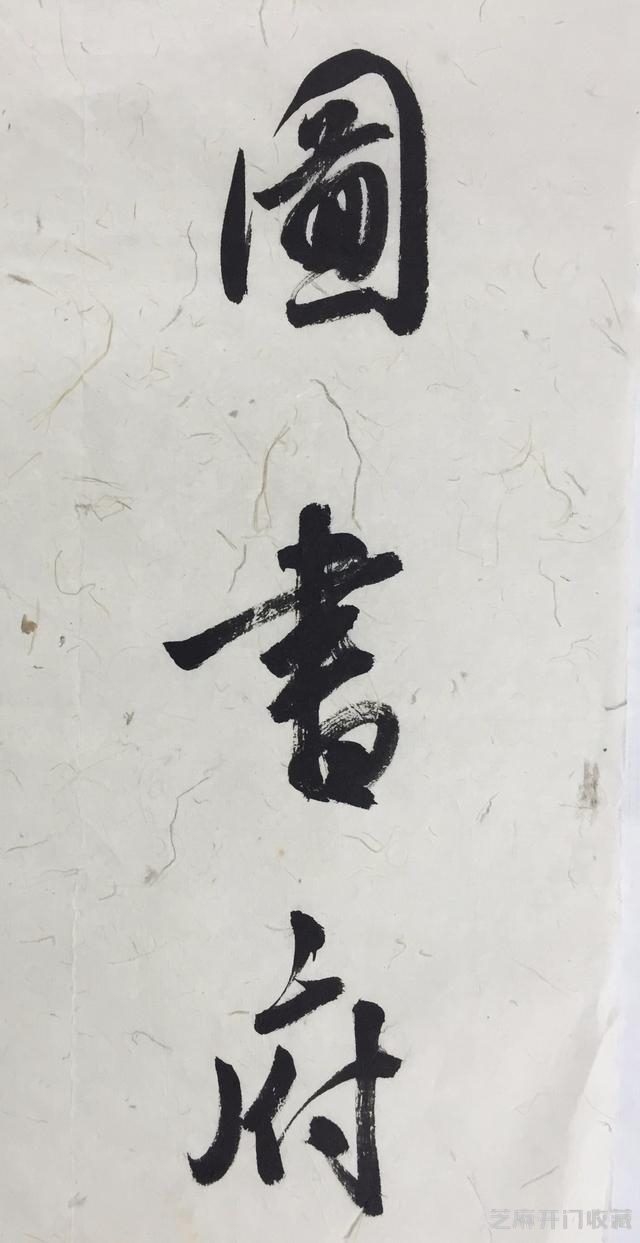 圖書府
芝麻开门收藏